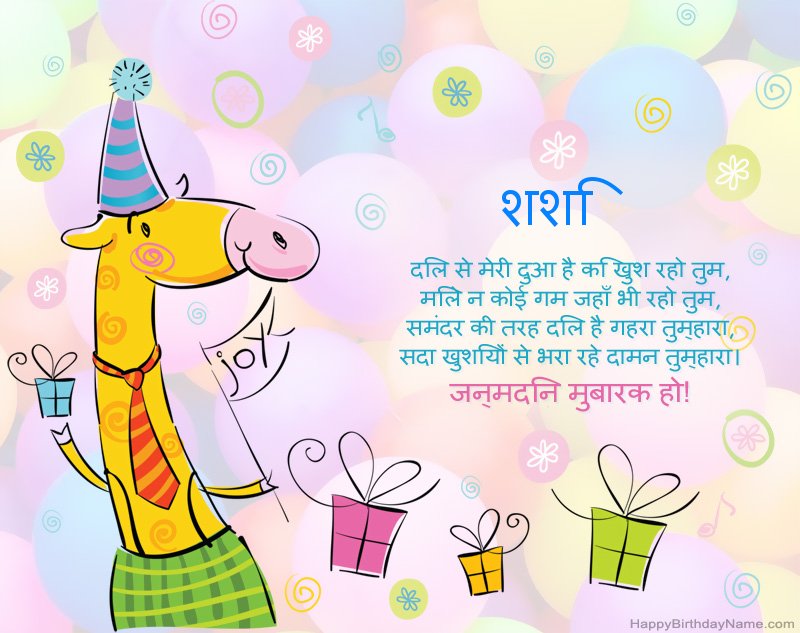 शशि
दिल से मेरी दुआ है कि खुश रहो तुम,
मिले न कोई गम जहाँ भी रहो तुम,
समंदर की तरह दिल है गहरा तुम्हारा,
सदा खुशियों से भरा रहे दामन तुम्हारा।
जन्मदिन मुबारक हो!
joy
HappyBirthdayName.com